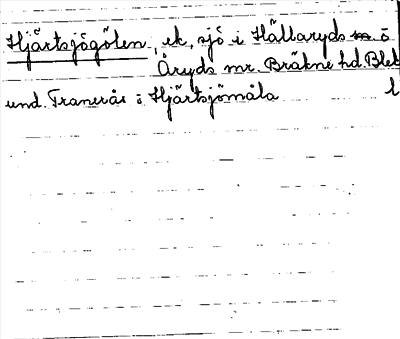 Hjärtsjögölen, ek, sjö i Hällaryds m. o
Åryds mr. Bräkne hd. Blek
und. Tranerås i Hjärtsjömåla l